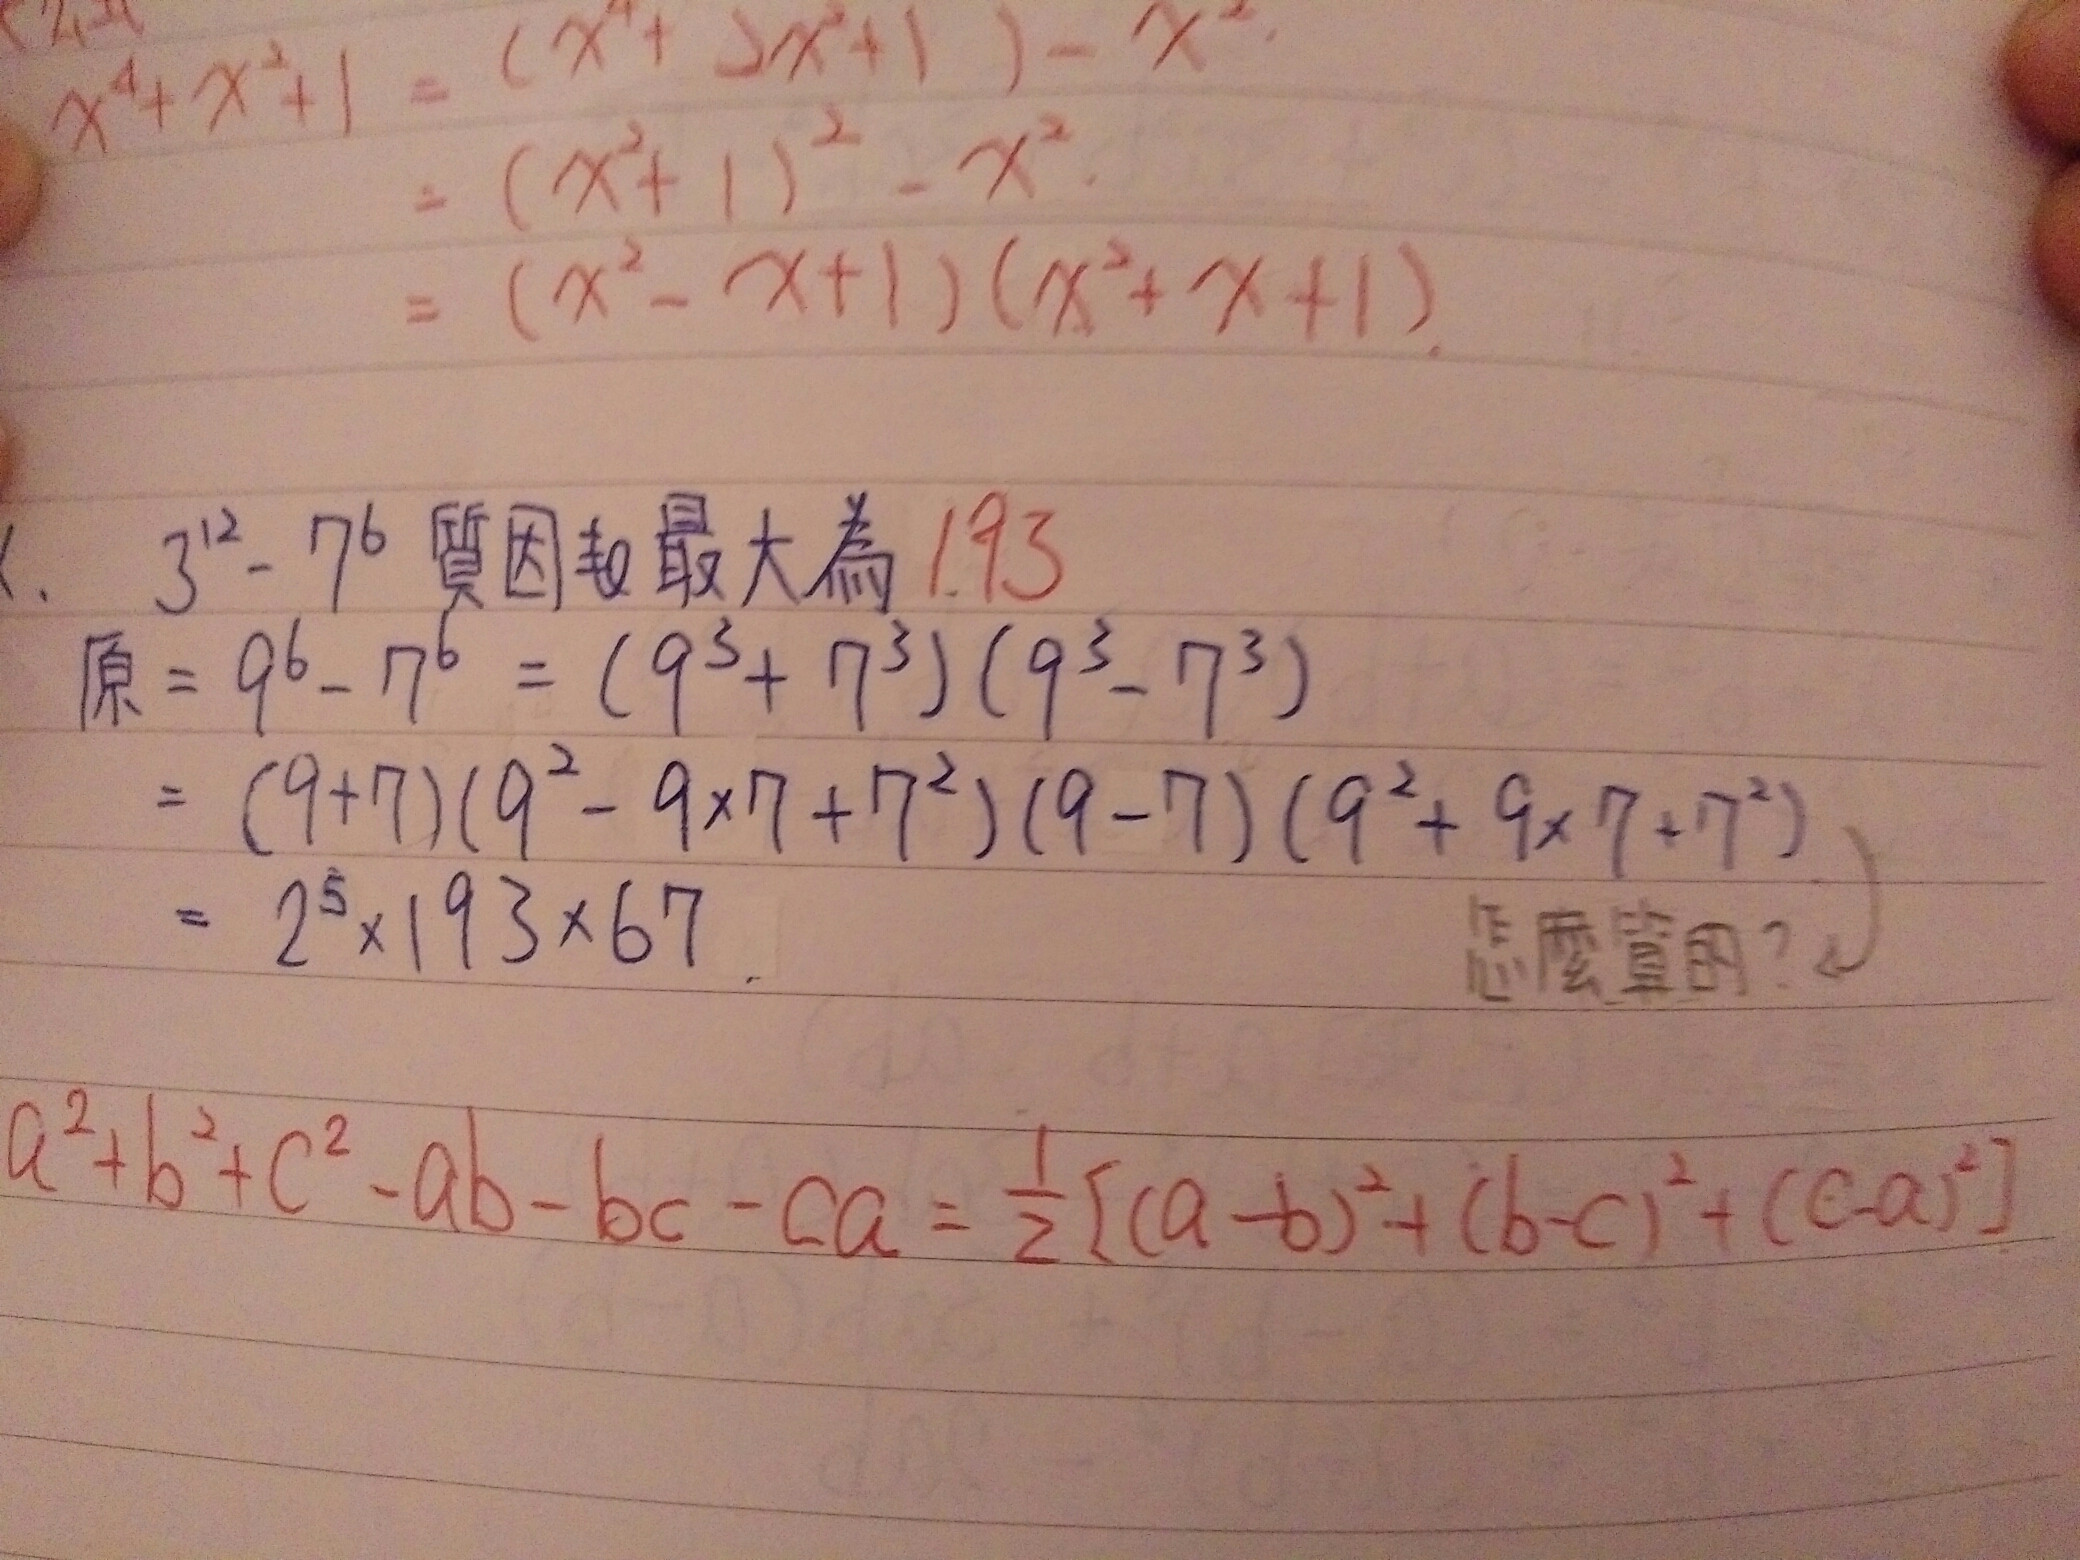 x⁴+x²+1 = (x⁴+2x²+1)-x².
= (x²+1)²-x².
= (x²-x+1)(x²+x+1).
3¹²-7⁶ 質因数最大為 193
原 = 9⁶-7⁶ = (9³+7³)(9³-7³)
= (9+7)(9²-9×7+7²)(9-7)(9²+9×7+7²)
= 2⁵×193×67.
怎麼算的?
a²+b²+c²-ab-bc-ca = ½[(a-b)²+(b-c)²+(c-a)²]